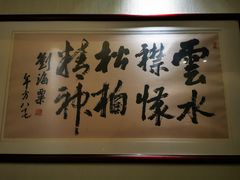 雲水
襟懷
松柏
精神
劉海粟
年方八七